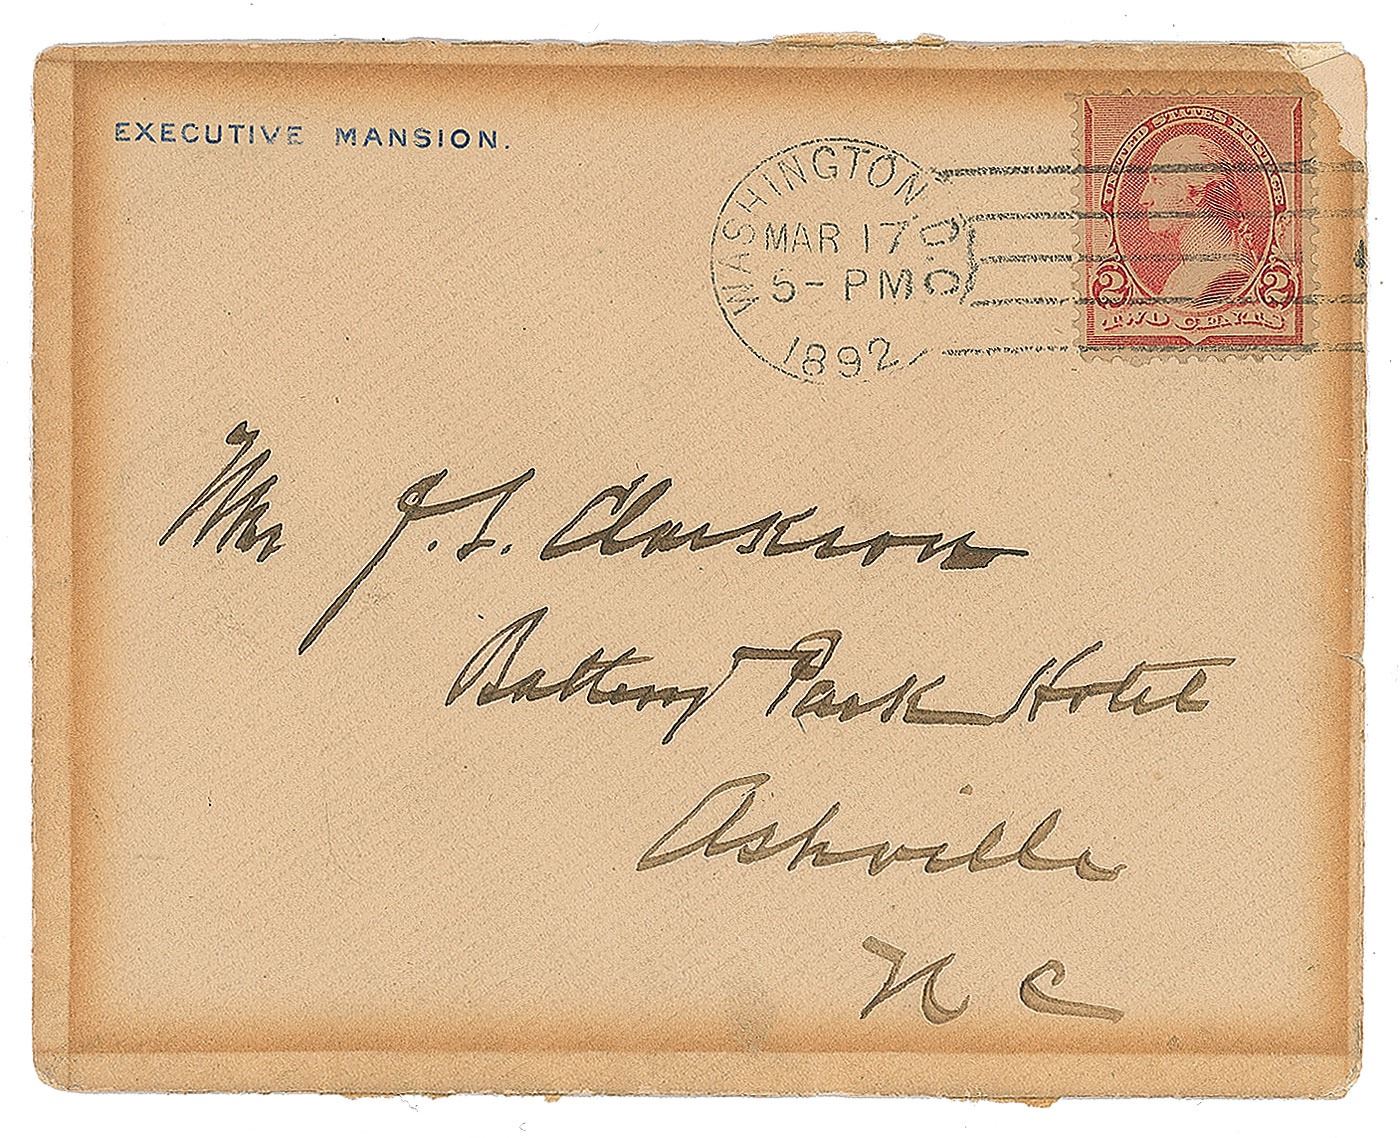 EXECUTIVE MANSION.
WASHINGTON, D.C.
MAR 17
5-PM
1892
UNITED STATES POSTAGE
2 2
TWO CENTS
Mr J. S. Clarkson
Battery Park Hotel
Ashville
N C